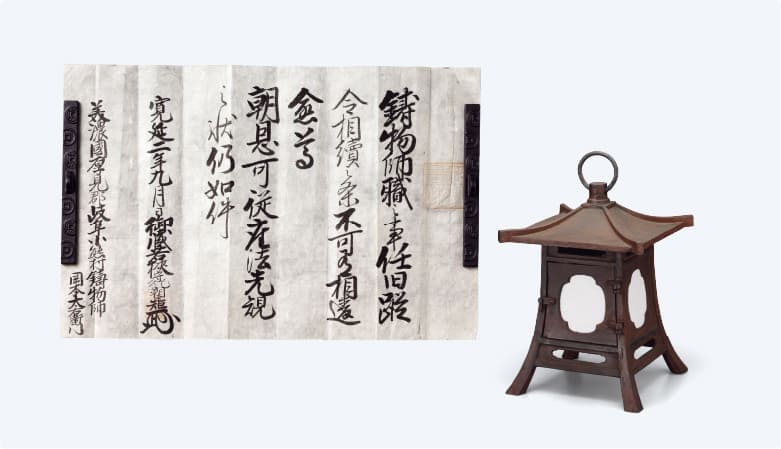 鑄物師職之事任旧蹤
令相續之条不可有相違
朝恩可従座法先規
之状仍如件
寛延二年九月日御蔵
美濃國厚見郡岐阜小熊村鋳物師
岡本太右衛門